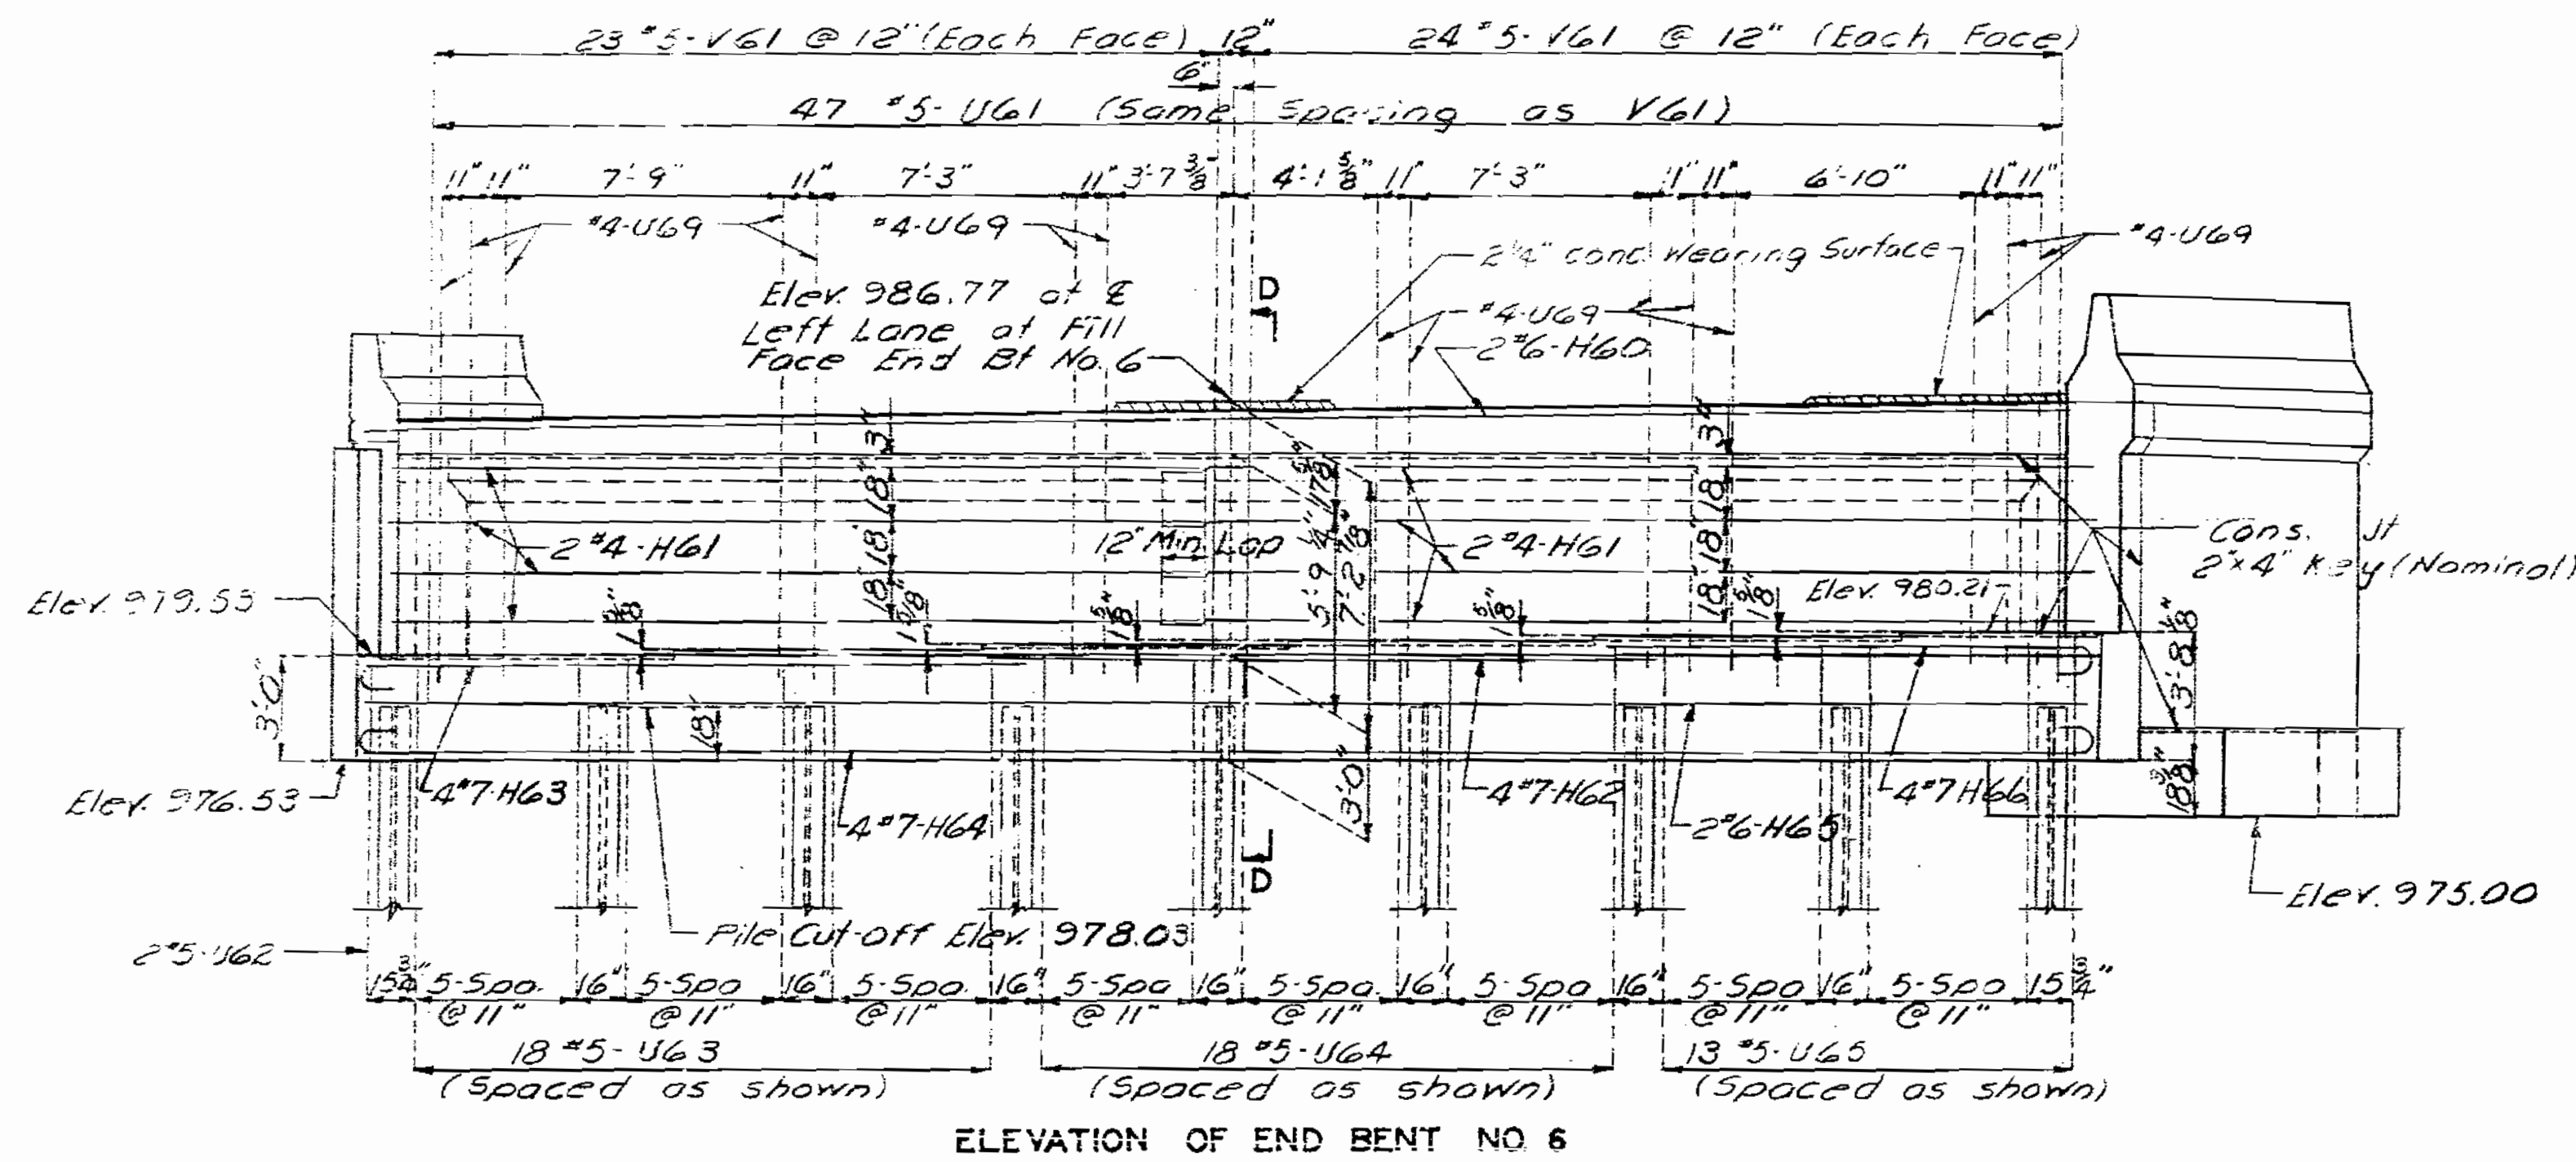 23 #5-V61 @ 12" (Each Face)
12"
24 #5-V61 @ 12" (Each Face)
6"
47 #5-U61 (Same Spacing as V61)
11" 11" 7'-9" 11" 7'-3" 11" 3'-7 3/8" 4'-1 5/8" 11" 7'-3" 11" 11" 6'-10" 11" 11"
#4-U69
#4-U69
#4-U69
2 1/4" Conc. Wearing Surface
Elev. 986.77 at ℄
Left Lane at Fill
Face End Bt No. 6
D
#4-U69
2 #6-H60
3"
18"
18"
18"
3"
18"
18"
18"
11 7/8"
5'-9 1/4"
7'-2 7/8"
2 #4-H61
12" Min. Lap
2 #4-H61
Cons. Jt
2"x4" Key (Nominal)
Elev. 979.53
1 5/8"
1 5/8"
1 5/8"
1 5/8"
1 5/8"
Elev. 980.21
3'-0"
18"
3'-8 1/8"
Elev. 976.53
4 #7-H63
4 #7-H64
3'-0"
4 #7-H62
2 #6-H65
4 #7-H66
18 3/8"
D
Elev. 975.00
Pile Cut-off Elev. 978.03
2 #5-U62
15 3/4" 5-Spa. @ 11" 16" 5-Spa @ 11" 16" 5-Spa. @ 11" 16" 5-Spa @ 11" 16" 5-Spa. @ 11" 16" 5-Spa @ 11" 16" 5-Spa @ 11" 16" 5-Spa @ 11" 15 3/4"
18 #5-U63
(Spaced as shown)
18 #5-U64
(Spaced as shown)
13 #5-U65
(Spaced as shown)
ELEVATION OF END BENT NO. 6